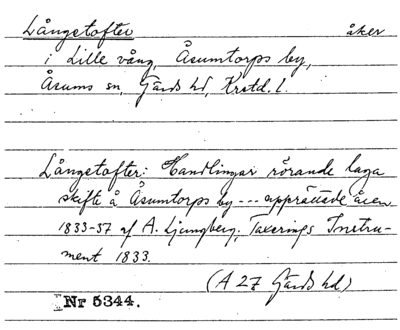 Långetofter åker
i Lille vång, Åsumtorps by,
Åsums sn, Gärds hd, Krstd. l.
Långetofter: Handlingar rörande laga
skifte å Åsumtorps by --- upprättade åren
1833-37 af A. Ljungberg, Taxerings Instru-
ment 1833.
(A 27 Gärds hd)
Nr 5344.